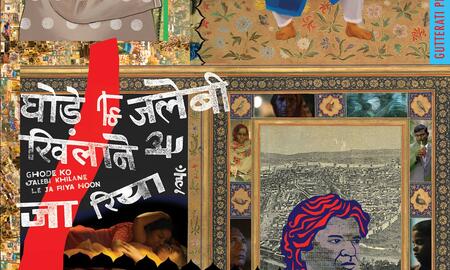 घोड़े को जलेबी
खिलाने ले
GHODE KO
JALEBI KHILANE
LE JA RIYA HOON
जा रिया हूँ
GUTTERATI P